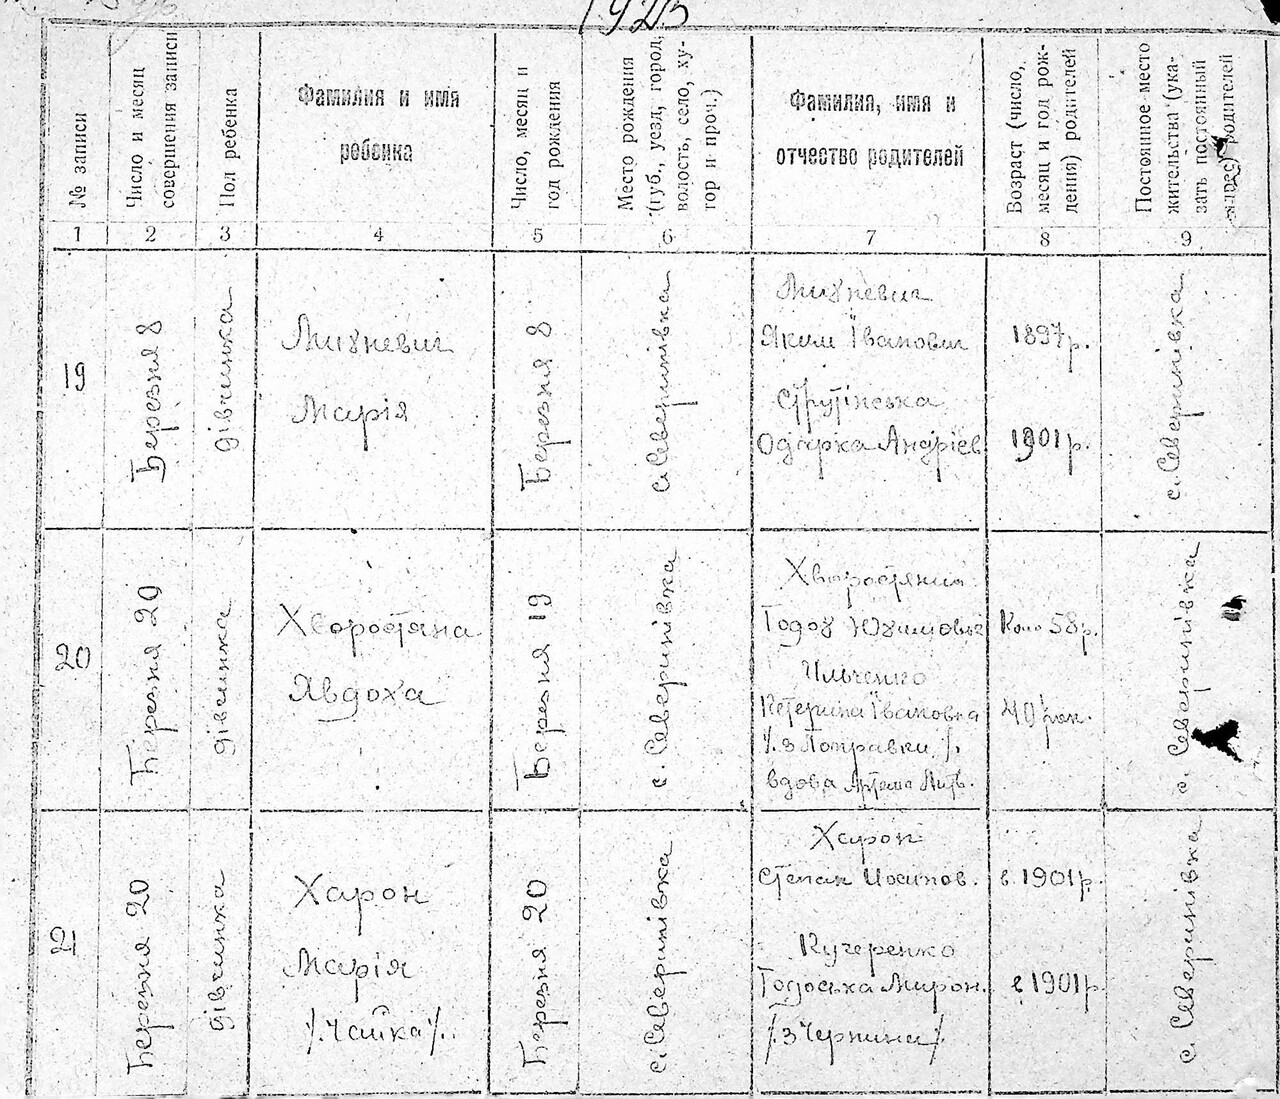 1925
№ записи
Число и месяц
совершения записи
Пол ребенка
Фамилия и имя
ребенка
Число, месяц и
год рождения
Место рождения
(губ., уезд, город,
волость, село, ху-
тор и проч.)
Фамилия, имя и
отчество родителей
Возраст (число,
месяц и год рож-
дения) родителей
Постоянное место
жительства (ука-
зать постоянный
адрес) родителей
1
2
3
4
5
6
7
8
9
19
Березня 8
дівчинка
Марія
Березня 8
с. Северинівка
Яким Іванович
Струтінська
Одарка Андріев
1897 р.
1901 р.
с. Северинівка
20
Березня 20
дівчинка
Хворостяна
Явдоха
Березня 19
с. Северинівка
Хворостяний
Тодох Юхимович
Ильченко
Катерина Івановна
/. з Поправки /.
вдова Артема Литв.
58 р.
40 рок.
с. Северинівка
21
Березня 20
дівчинка
Харон
Марія
/. Чайка /.
Березня 20
с. Северинівка
Харон
Степан Иосипов.
Кучеренко
Тодоська Мирон.
/з Чернина/
в 1901 р.
в 1901 р.
с. Северинівка